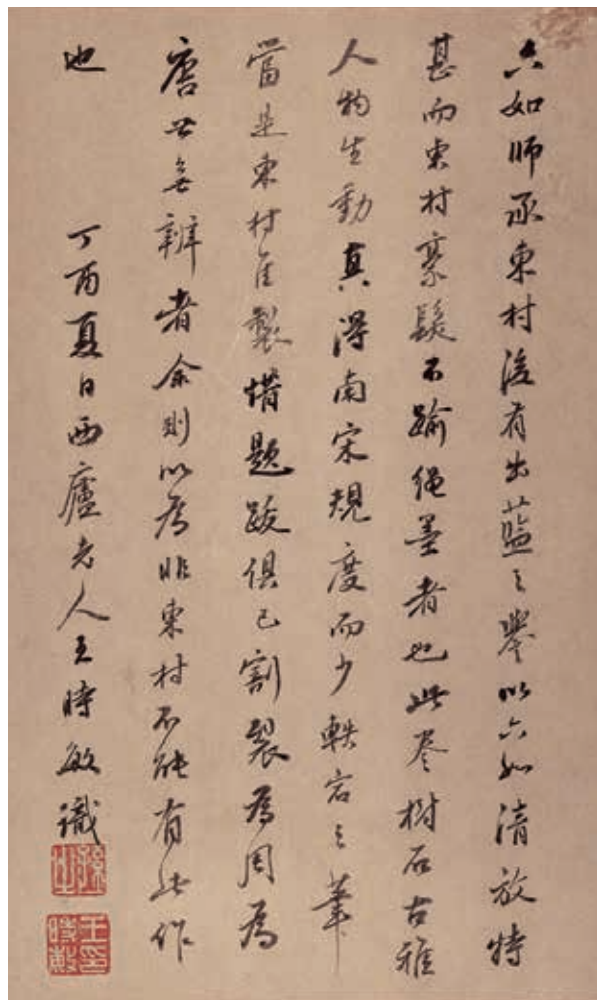 六如師承東村後有出藍之譽以六如清放特
甚而東村豪髮不踰繩墨者也此卷樹石古雅
人物生動真得南宋規度而少軼宕之筆
當是東村佳製惜題跋俱已割裂為周為
唐世無辨者余則以為非東村不能有此作
也
丁酉夏日西廬老人王時敏識
王時敏印